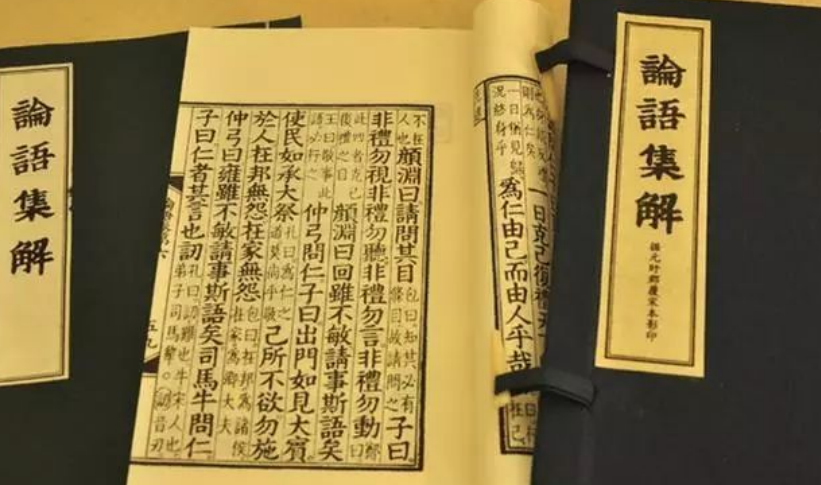 論語集解
據元盱郡覆宋本影印
一日克己復禮天
爲仁由己而由人乎哉
不在人也顏淵曰請問其目包曰知其必有條目故請問之子曰
非禮勿視非禮勿聽非禮勿言非禮勿動鄭曰
此四者克己復禮之目顏淵曰回雖不敏請事斯語矣
王曰敬事此語必行之仲弓問仁子曰出門如見大賓
使民如承大祭孔曰爲仁之道莫尚乎敬己所不欲勿施
於人在邦無怨在家無怨包曰在邦爲諸侯在家爲卿大夫
仲弓曰雍雖不敏請事斯語矣司馬牛問仁
子曰仁者其言也訒孔曰訒難也牛宋人也弟子司馬犂訒音刃
論語集解